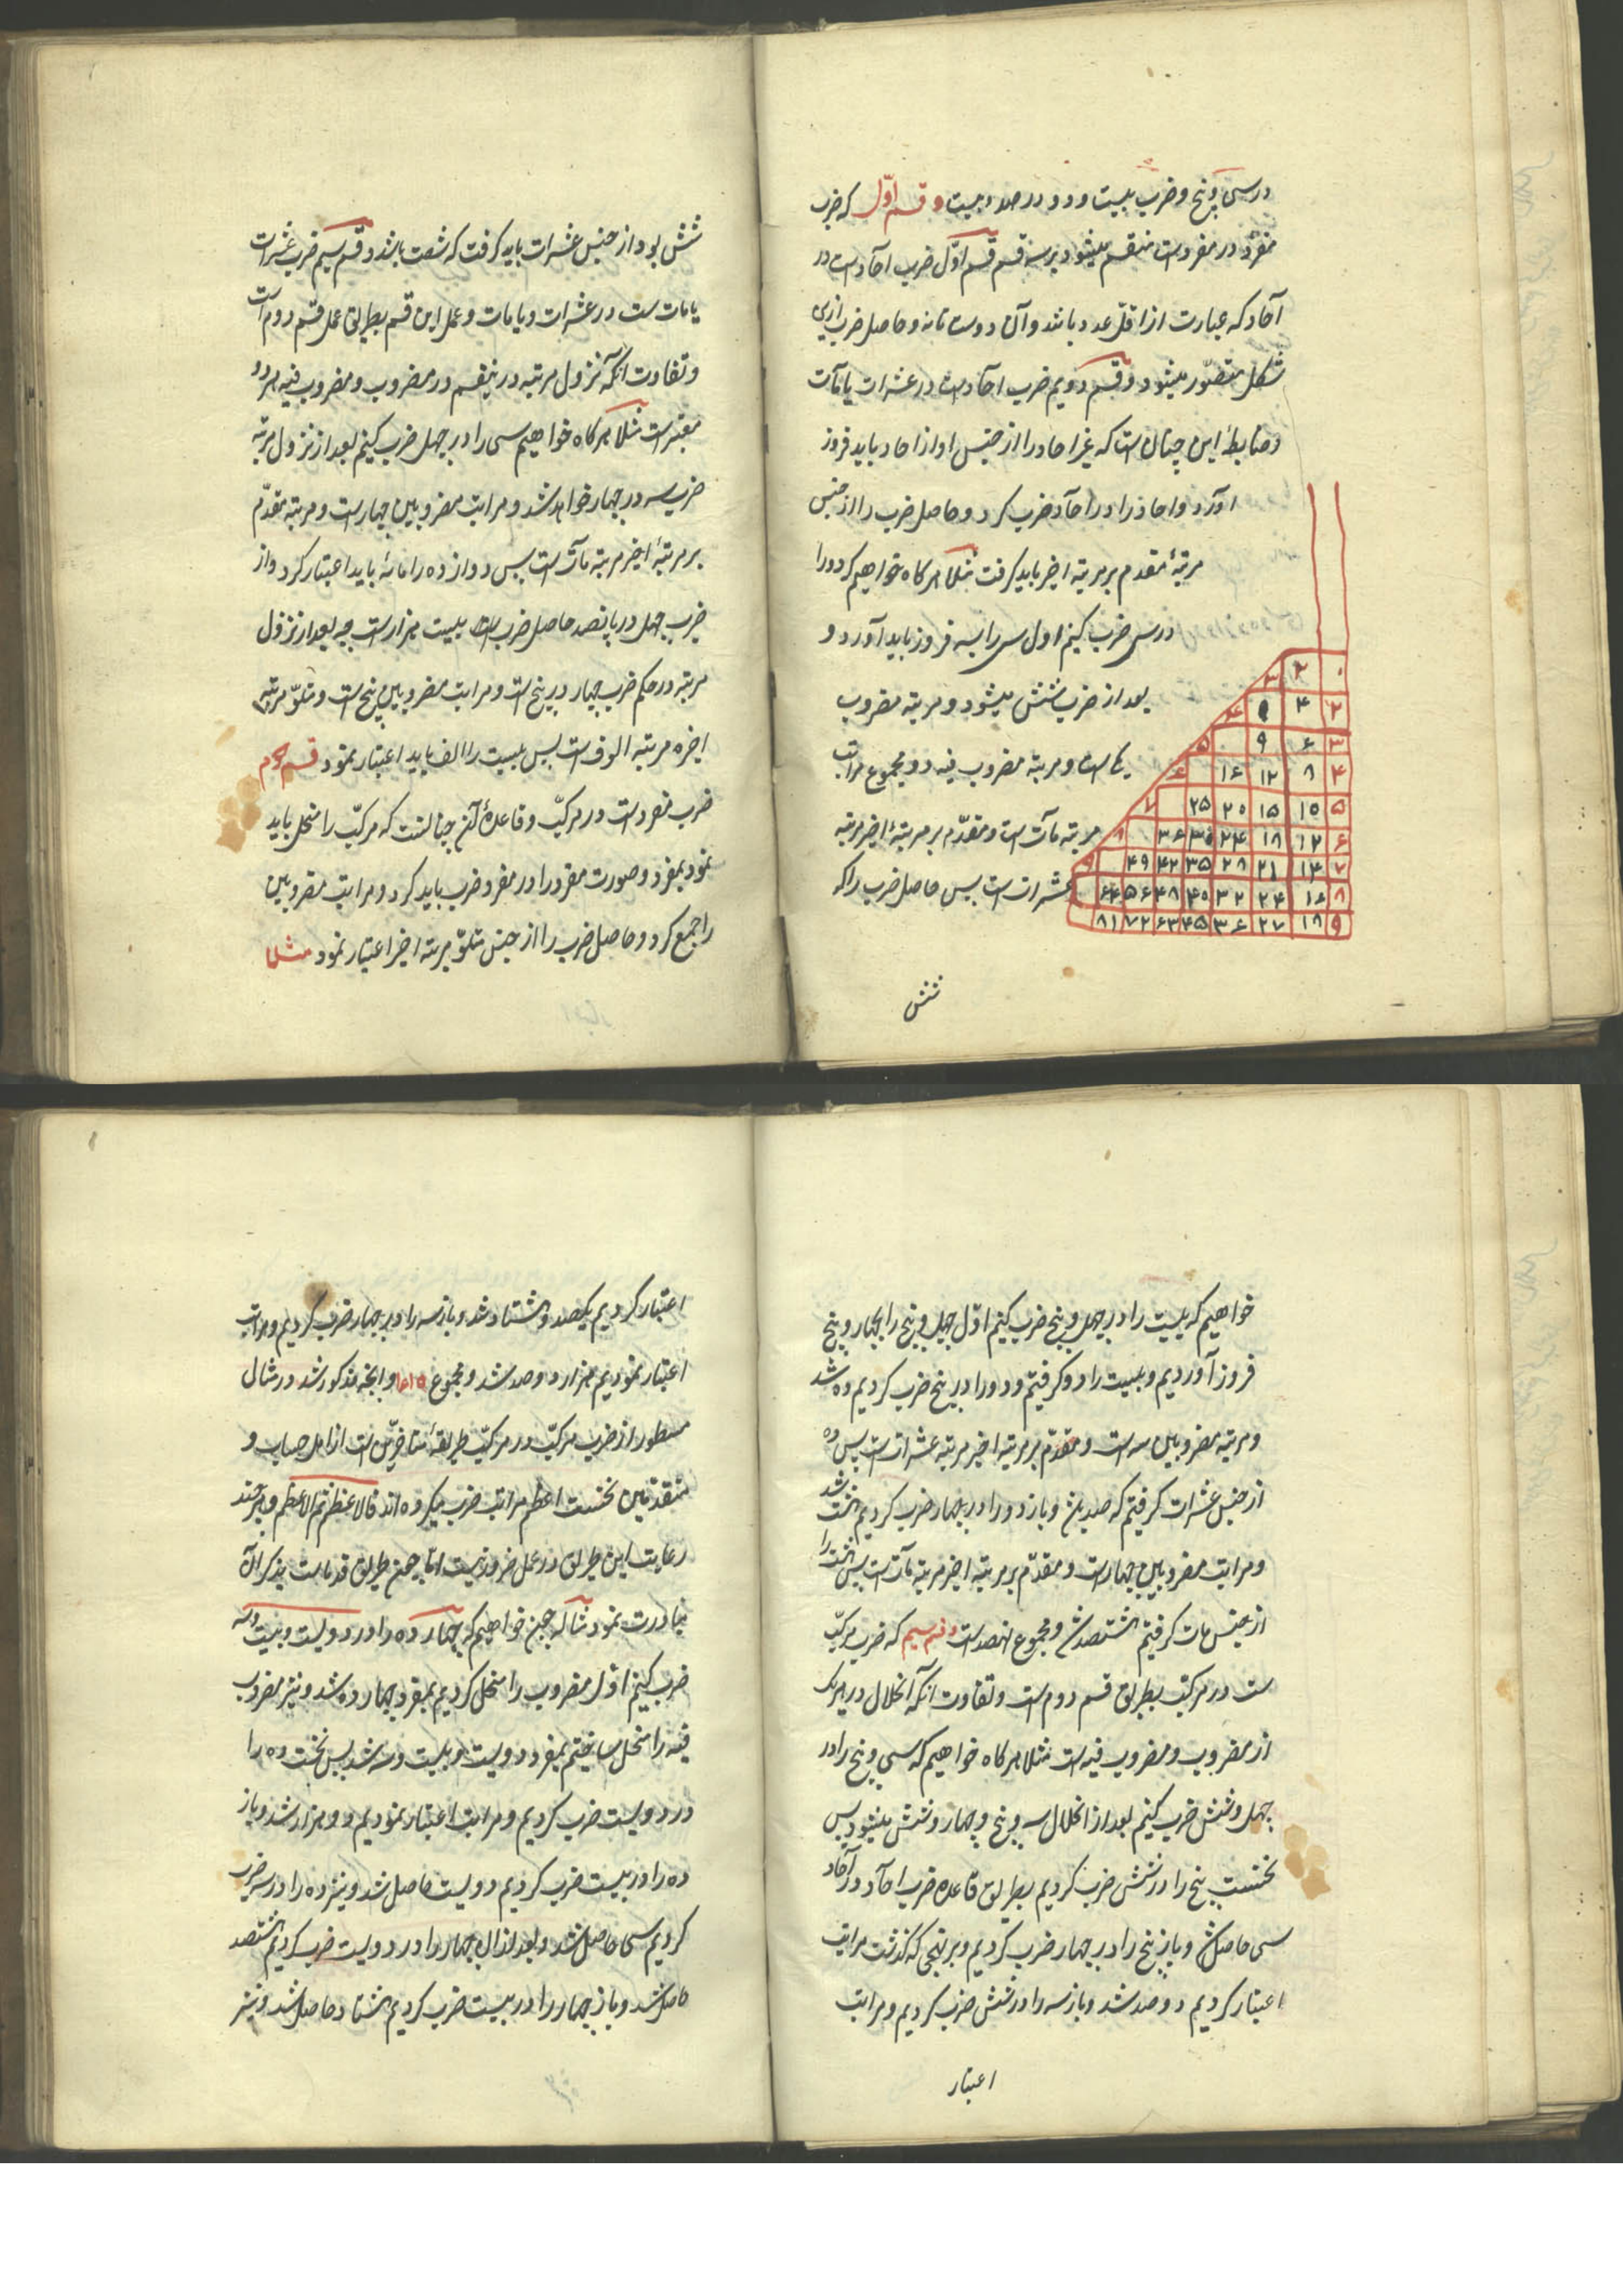 درسی و پنج و ضرب بیست و دو در صد و بیست و قسم اوّل که ضرب
مفرد در مفردست منقسم میشود بر سه قسم قسم اوّل ضرب آحادست در
آحاد که عبارت از اقل عدد باشد و آن دوست تا نه و حاصل ضرب ازین
شکل متصوّر میشود و قسم دویم ضرب احادست در عشرات یا مآت
و ضابطهٔ این چنان ست که غیر احاد را از جنس او از احاد باید فروز
آورد و احاد را در آحاد ضرب کرد و حاصل ضرب را از جنس
مرتبهٔ مقدم بر مرتبه اخیر باید کرفت مثلا هر کاه خواهیم که دو را
در سی ضرب کنیم اول سی را بسه فروز باید آورد و
بعد از ضرب شش میشود و مرتبه مضروب
یک است و مرتبه مضروب فیه دو و مجموع مراتب
مرتبه مآت است و مقدّم بر مرتبهٔ اخیر مرتبه
عشرات ست پس حاصل ضرب را که
۲ ۳
۲ ۴ ۹ ۴
۳ ۶ ۹ ۵
۴ ۸ ۱۲ ۱۶ ۶
۵ ۱۵ ۱۵ ۲۰ ۲۵ ۷
۶ ۱۲ ۱۸ ۲۴ ۳۵ ۳۶ ۸
۷ ۱۴ ۲۱ ۲۸ ۳۵ ۴۲ ۴۹ ۹
۸ ۱۶ ۲۴ ۳۲ ۴۵ ۴۸ ۵۶ ۶۴
۹ ۱۸ ۲۷ ۳۶ ۴۵ ۶۳ ۷۲ ۸۱
شش
شش بود از جنس عشرات باید کرفت که شصت باشد و قسم سیم ضرب عشرات
یا مات ست در عشرات و یا مات و عمل این قسم بطریق عمل قسم دوم است
و تفاوت آنکه نزول مرتبه در ینقسم در مضروب و مضروب فیه هر دو
معتبرست مثلا هر کاه خواهیم سی را در چهل ضرب کنیم بعد از نزول مرتبه
ضرب سه در چهار خواهد شد و مراتب مضروبین چهارست و مرتبه مقدّم
بر مرتبهٔ اخیر مرتبه مآت ست پس دوازده را مائه باید اعتبار کرد و از
ضرب چهل در پانصد حاصل ضرب بیست هزارست چه بعد از نزول
مرتبه در حکم ضرب چهار در پنج ست و مراتب مضروبین پنج ست و متلوّ مرتبهٔ
اخیره مرتبه الوف ست پس بیست را الف باید اعتبار نمود قسم دوم
ضرب مفردست در مرکّب و قاعدهٔ آن چنانست که مرکّب را منحل باید
نمود بمفرد و صورت مفرد را در مفرد ضرب باید کرد و مراتب مضروبین
را جمع کرد و حاصل ضرب را از جنس متلوّ مرتبه اخیر اعتبار نمود مثلا
خواهیم که بیست را در چهل و پنج ضرب کنیم اوّل چهل و پنج را بچهار و پنج
فروز آوردیم و بیست را دو کرفتیم و دو را در پنج ضرب کردیم ده شد
و مرتبه مضروبین سه است و مقدّم بر مرتبه اخیر مرتبه عشرات ست پس ده
از جنس عشرات کرفتیم که صد شد و باز دو را در چهار ضرب کردیم هشت شد
و مراتب مضروبین چهارست و مقدّم بر مرتبه اخیر مرتبه مآت ست پس هشت را
از جنس مات کرفتیم هشتصد شد و مجموع نهصدست و قسم سیم که ضرب مرکّب
ست در مرکّب بطریق قسم دوم ست و تفاوت آنکه انحلال در هر یک
از مضروب و مضروب فیه ست مثلا هر کاه خواهیم که سی و پنج را در
چهل و شش ضرب کنیم بعد از انحلال سه و پنج و چهار و شش میشود پس
نخست پنج را در شش ضرب کردیم بطریق قاعده ضرب احاد در آحاد
سی حاصل شد و باز پنج را در چهار ضرب کردیم و بر نهجی که کذشت مراتب
اعتبار کردیم دوصد شد و باز سه را در شش ضرب کردیم و مراتب
اعتبار
اعتبار کردیم یکصد و هشتاد شد و باز سه را در چهار ضرب کردیم و مراتب
اعتبار نمودیم هزار و دوصد شد و مجموع و آنچه مذکور شد در مثال
مسطور از ضرب مرکّب در مرکّب طریقهٔ متاخرّین ست از اهل حساب و
متقدّمین نخست اعظم مراتب ضرب میکرده اند فالاعظم ثم الاعظم و هر چند
رعایت این طریق در عمل ضرور نیست امّا چون طریق قدماست بذکر آن
مبادرت نمود مثلا که چون خواهیم که چهارده را در دویست و بیست و سه
ضرب کنیم اوّل مضروب را منحل کردیم بمفرد چهار و ده شد و نیز مضروب
فیه را منحل ساختیم بمفرد دویست و بیست و سه شد پس نخست ده را
در دویست ضرب کردیم و مراتب اعتبار نمودیم دو هزار شد و باز
ده را در بیست ضرب کردیم دویست حاصل شد و نیز ده را در سه ضرب
کردیم سی حاصل شد و بعد از آن چهار را در دویست ضرب کردیم هشتصد
حاصل شد و باز چهار را در بیست ضرب کردیم هشتاد حاصل شد و نیز